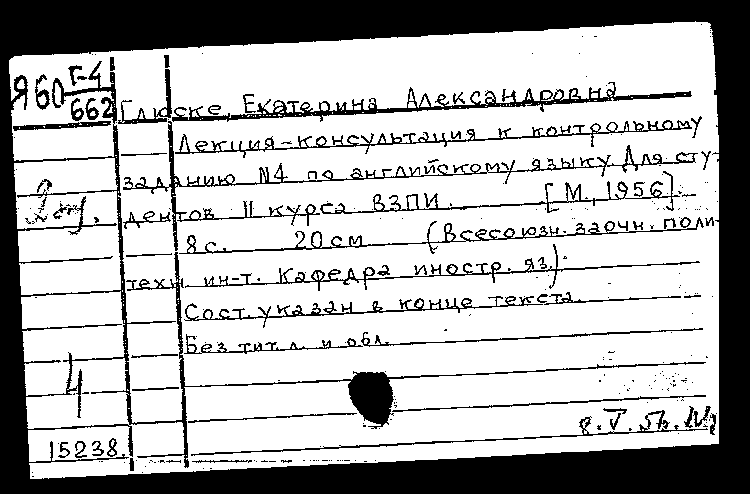 Я60 Г-4
662
Глюске, Екатерина Александровна
Лекция-консультация к контрольному
заданию N4 по английскому языку для сту-
дентов II курса ВЗПИ. [М., 1956].
8 с. 20 см (Всесоюзн. заочн. поли-
техн. ин-т. Кафедра иностр. яз.).
Сост. указан в конце текста.
Без тит. л. и обл.
4
15238.
8. V.